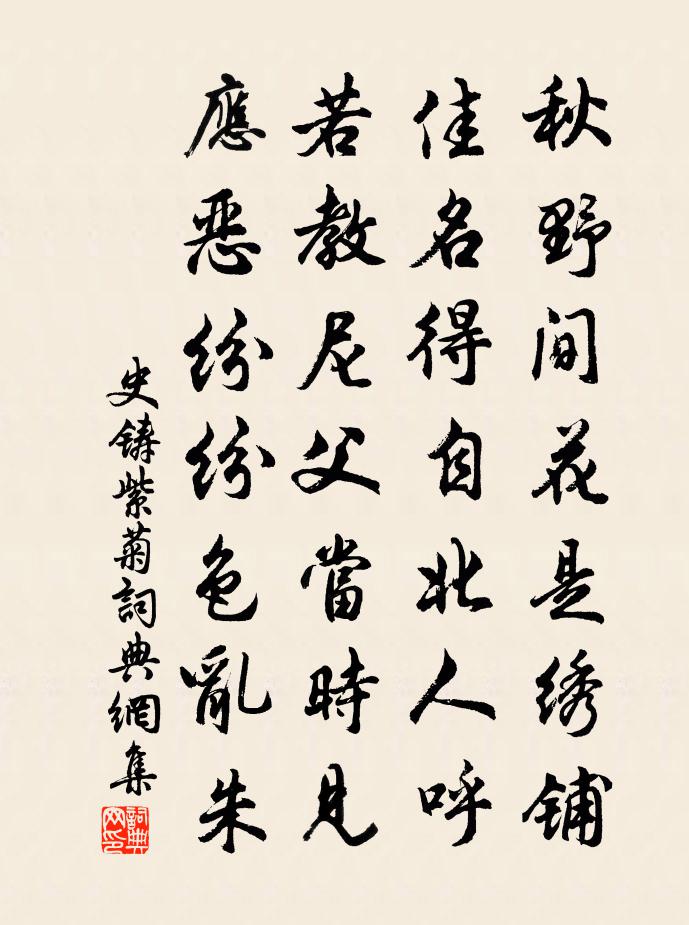 秋野间花是绣铺
佳名得自北人呼
若教尼父當時見
應惡紛紛色亂朱
史铸紫菊詞典網集
詞典网印